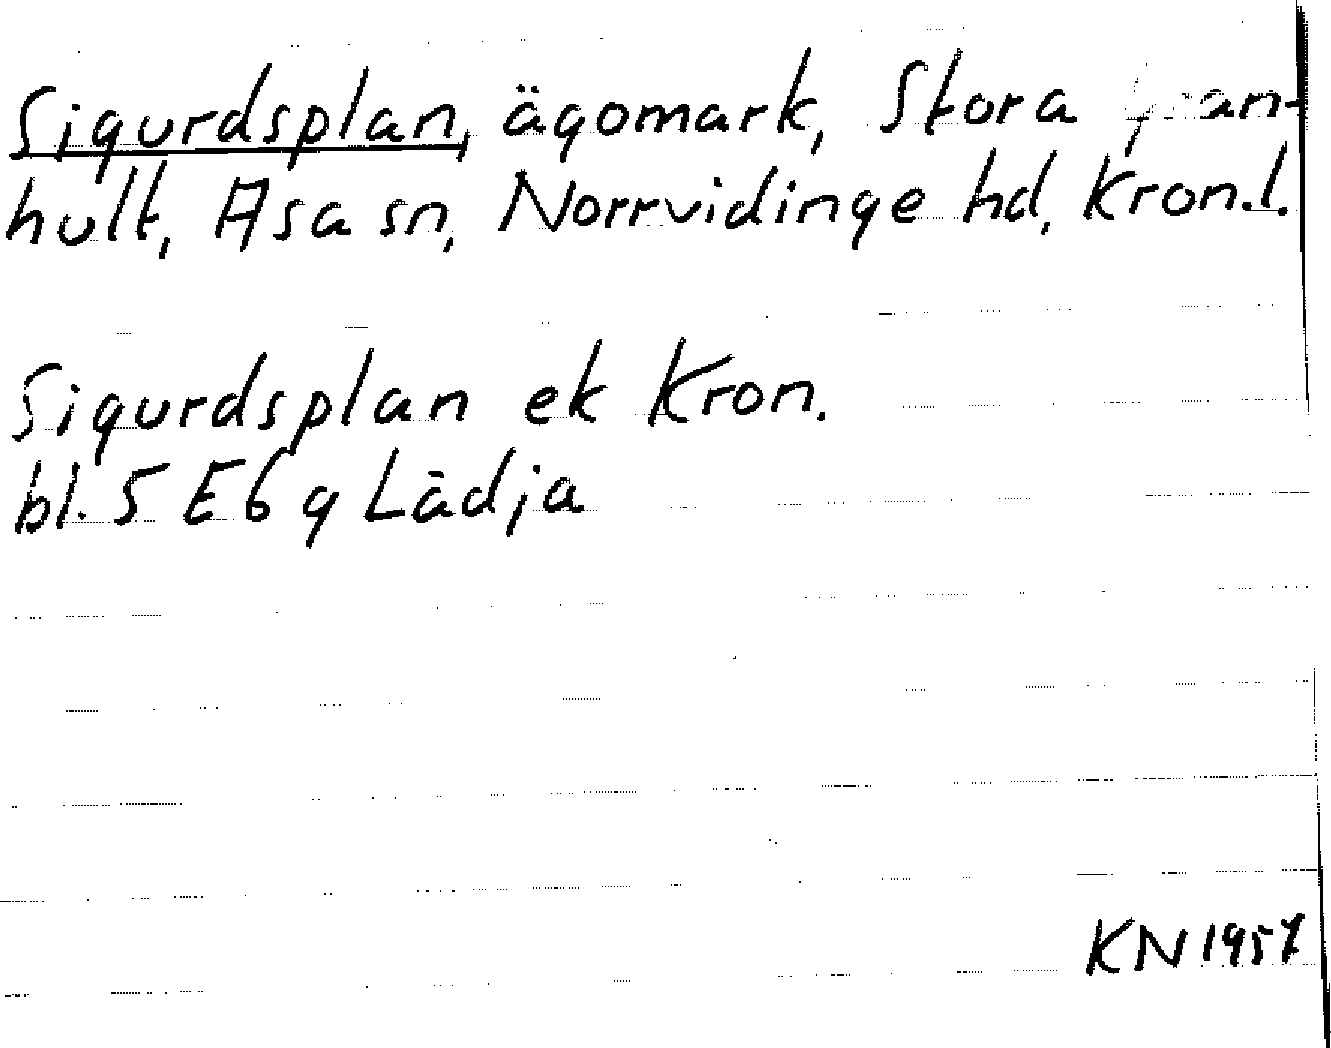 Sigurdsplan, ägomark, Stora Gran-
hult, Asa sn, Norrvidinge hd, Kron.l.
Sigurdsplan ek Kron.
bl. 5 E 6 g Lädja
KN 1957